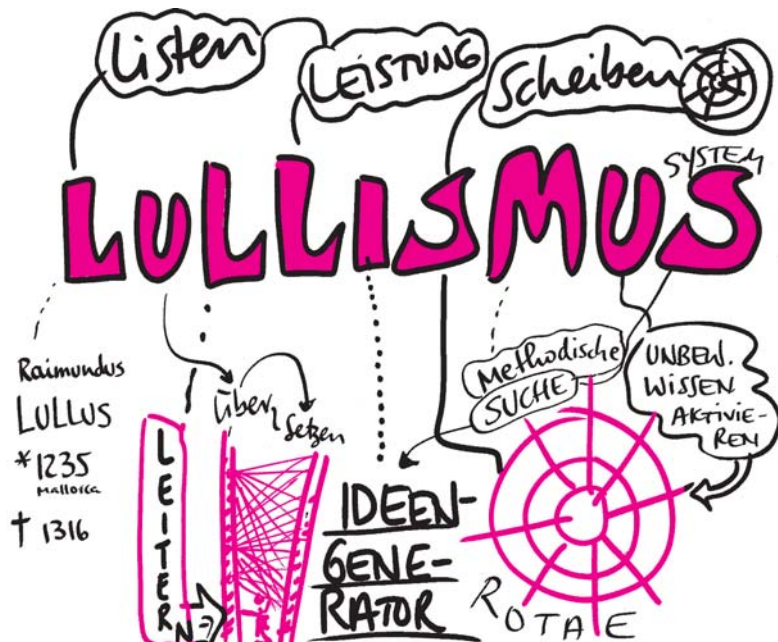 Listen
LEISTUNG
Scheiben
SYSTEM
LULLISMUS
Raimundus
LULLUS
* 1235
Mallorca
† 1316
LEITERN
Über
setzen
Methodische
SUCHE
UNBEW.
WISSEN
AKTIVIE-
REN
IDEEN-
GENE-
RATOR
ROTAE